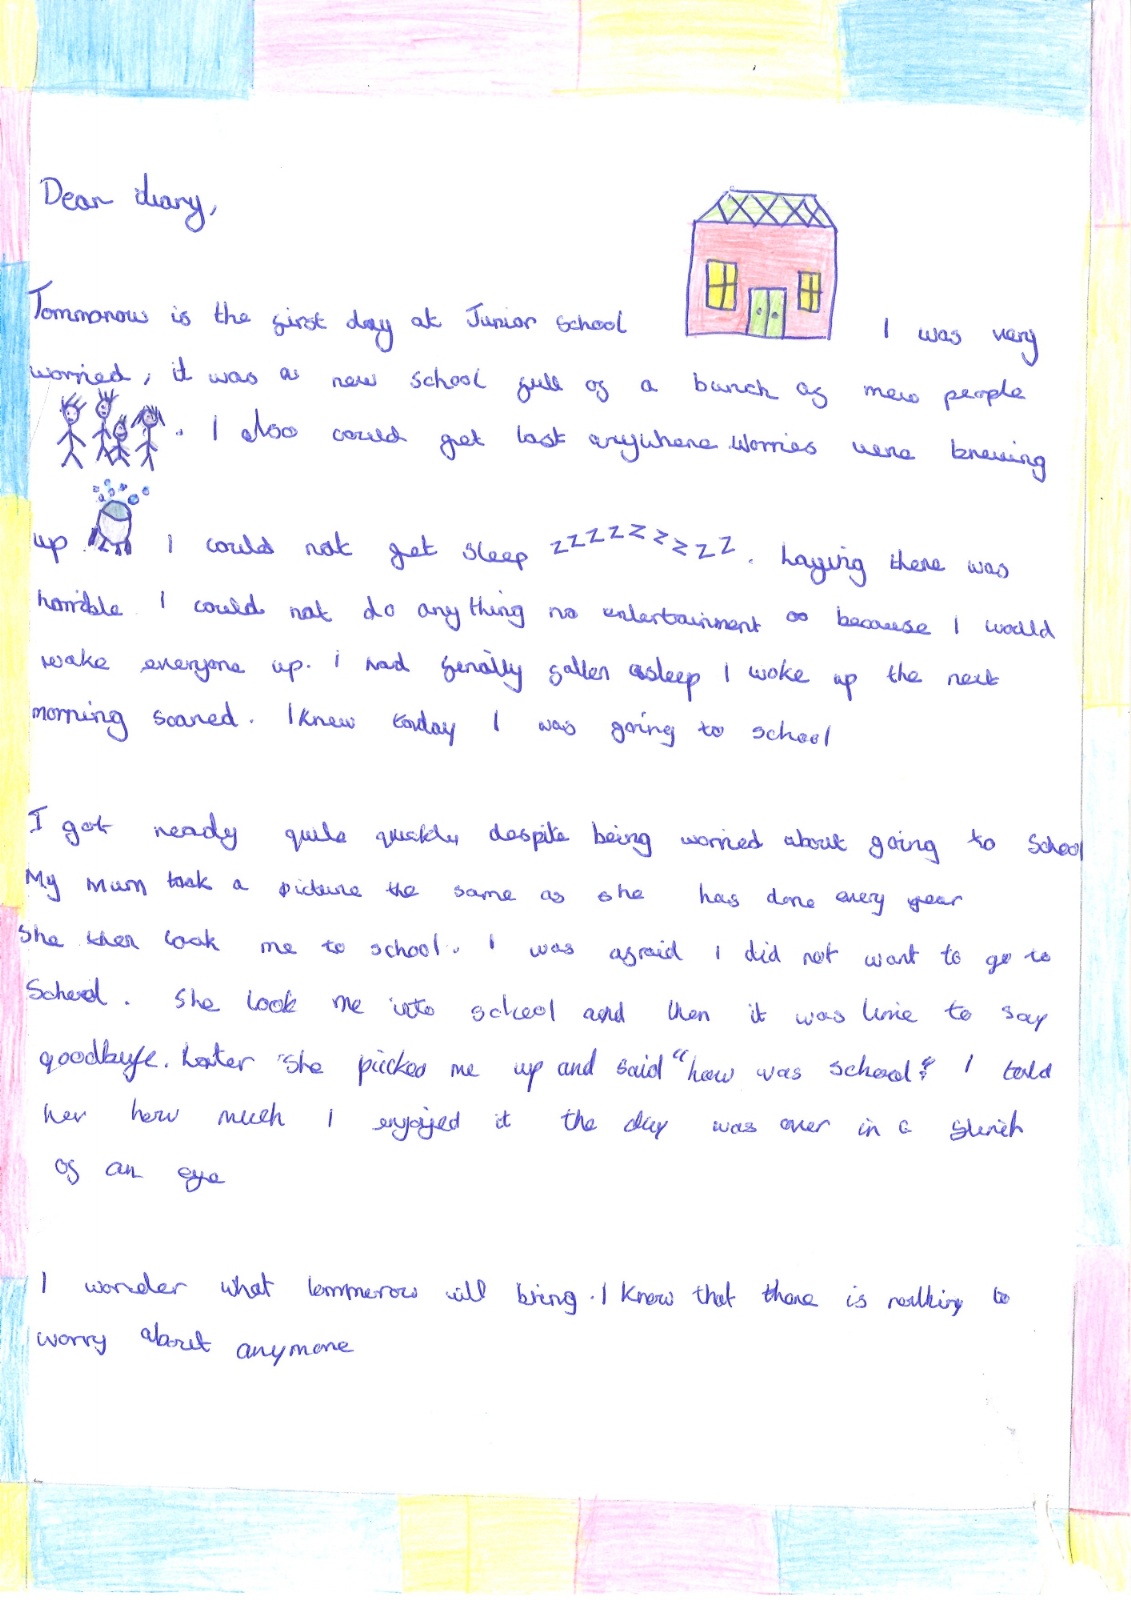 Dear diary,
Tommorow is the first day at Junior School I was very
worried, it was a new school full of a bunch of new people
. I also could get lost anywhere. Worries were brewing
up I could not get sleep zzzzzzzzz. Laying there was
horrible I could not do anything no entertainment because I would
wake everyone up. I had finally fallen asleep I woke up the next
morning scared. I knew today I was going to school
I got ready quite quickly despite being worried about going to School
My Mum took a picture the same as she has done every year
She then took me to school. I was afraid I did not want to go to
School. She took me into school and then it was time to say
goodbuye. Later She picked me up and said "how was school? I told
her how much I enjoyed it the day was over in a
of an eye
I wonder what tommorow will bring. I know that there is nothing to
worry about anymore